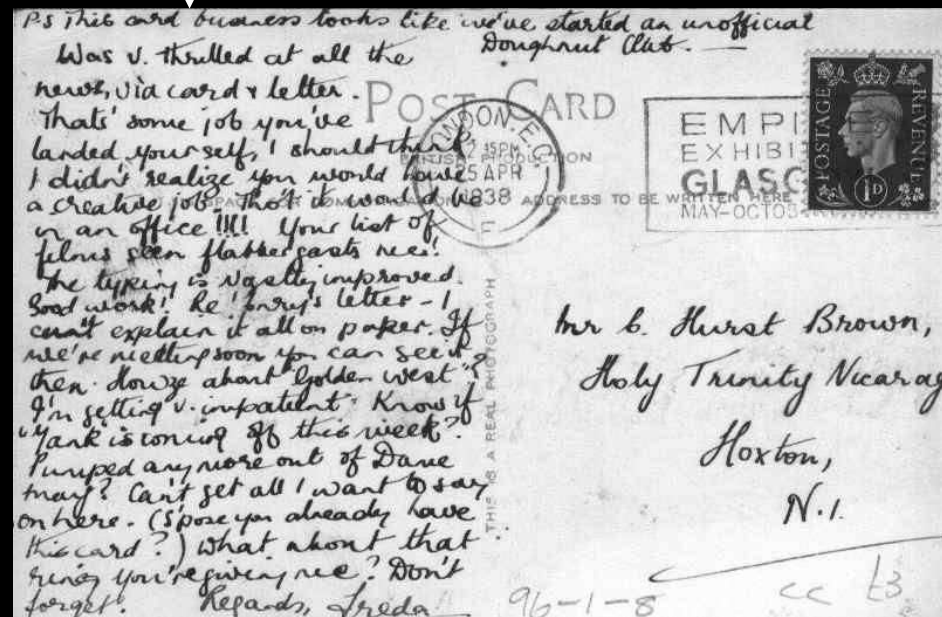 P.S This card business looks like we've started an unofficial
Doughnut Club. —
Was v. thrilled at all the
news, via card & letter.
Thats' some job you've
landed yourself, I should think
I didn't realize you would have
a creative job. Tho't it would be
in an office !!!! Your list of
films seen flabbergasts me!
The typing is vastly improved.
Good work! Re 's letter - I
can't explain it all on paper. If
we're meeting soon you can see it
then. Howze about "Golden West"?
I'm getting v. impatient. Know if
"Yank is coming off this week?
Pumped any more out of Dame
May? Can't get all I want to say
on here. (S'pose you already have
this card?) What about that
ring you're giving me? Don't
forget! Regards, Freda
POST CARD
BRITISH PRODUCTION
ADDRESS TO BE WRITTEN HERE
THIS IS A REAL PHOTOGRAPH
LONDON. E.C.
2 15PM
25 APR
1938
EMPI
EXHIBI
GLASG
MAY-OCT
POSTAGE
REVENUE
1D
Mr C. Hurst Brown,
Holy Trinity Vicarag
Hoxton,
N.1.
96-1-8
cc £3